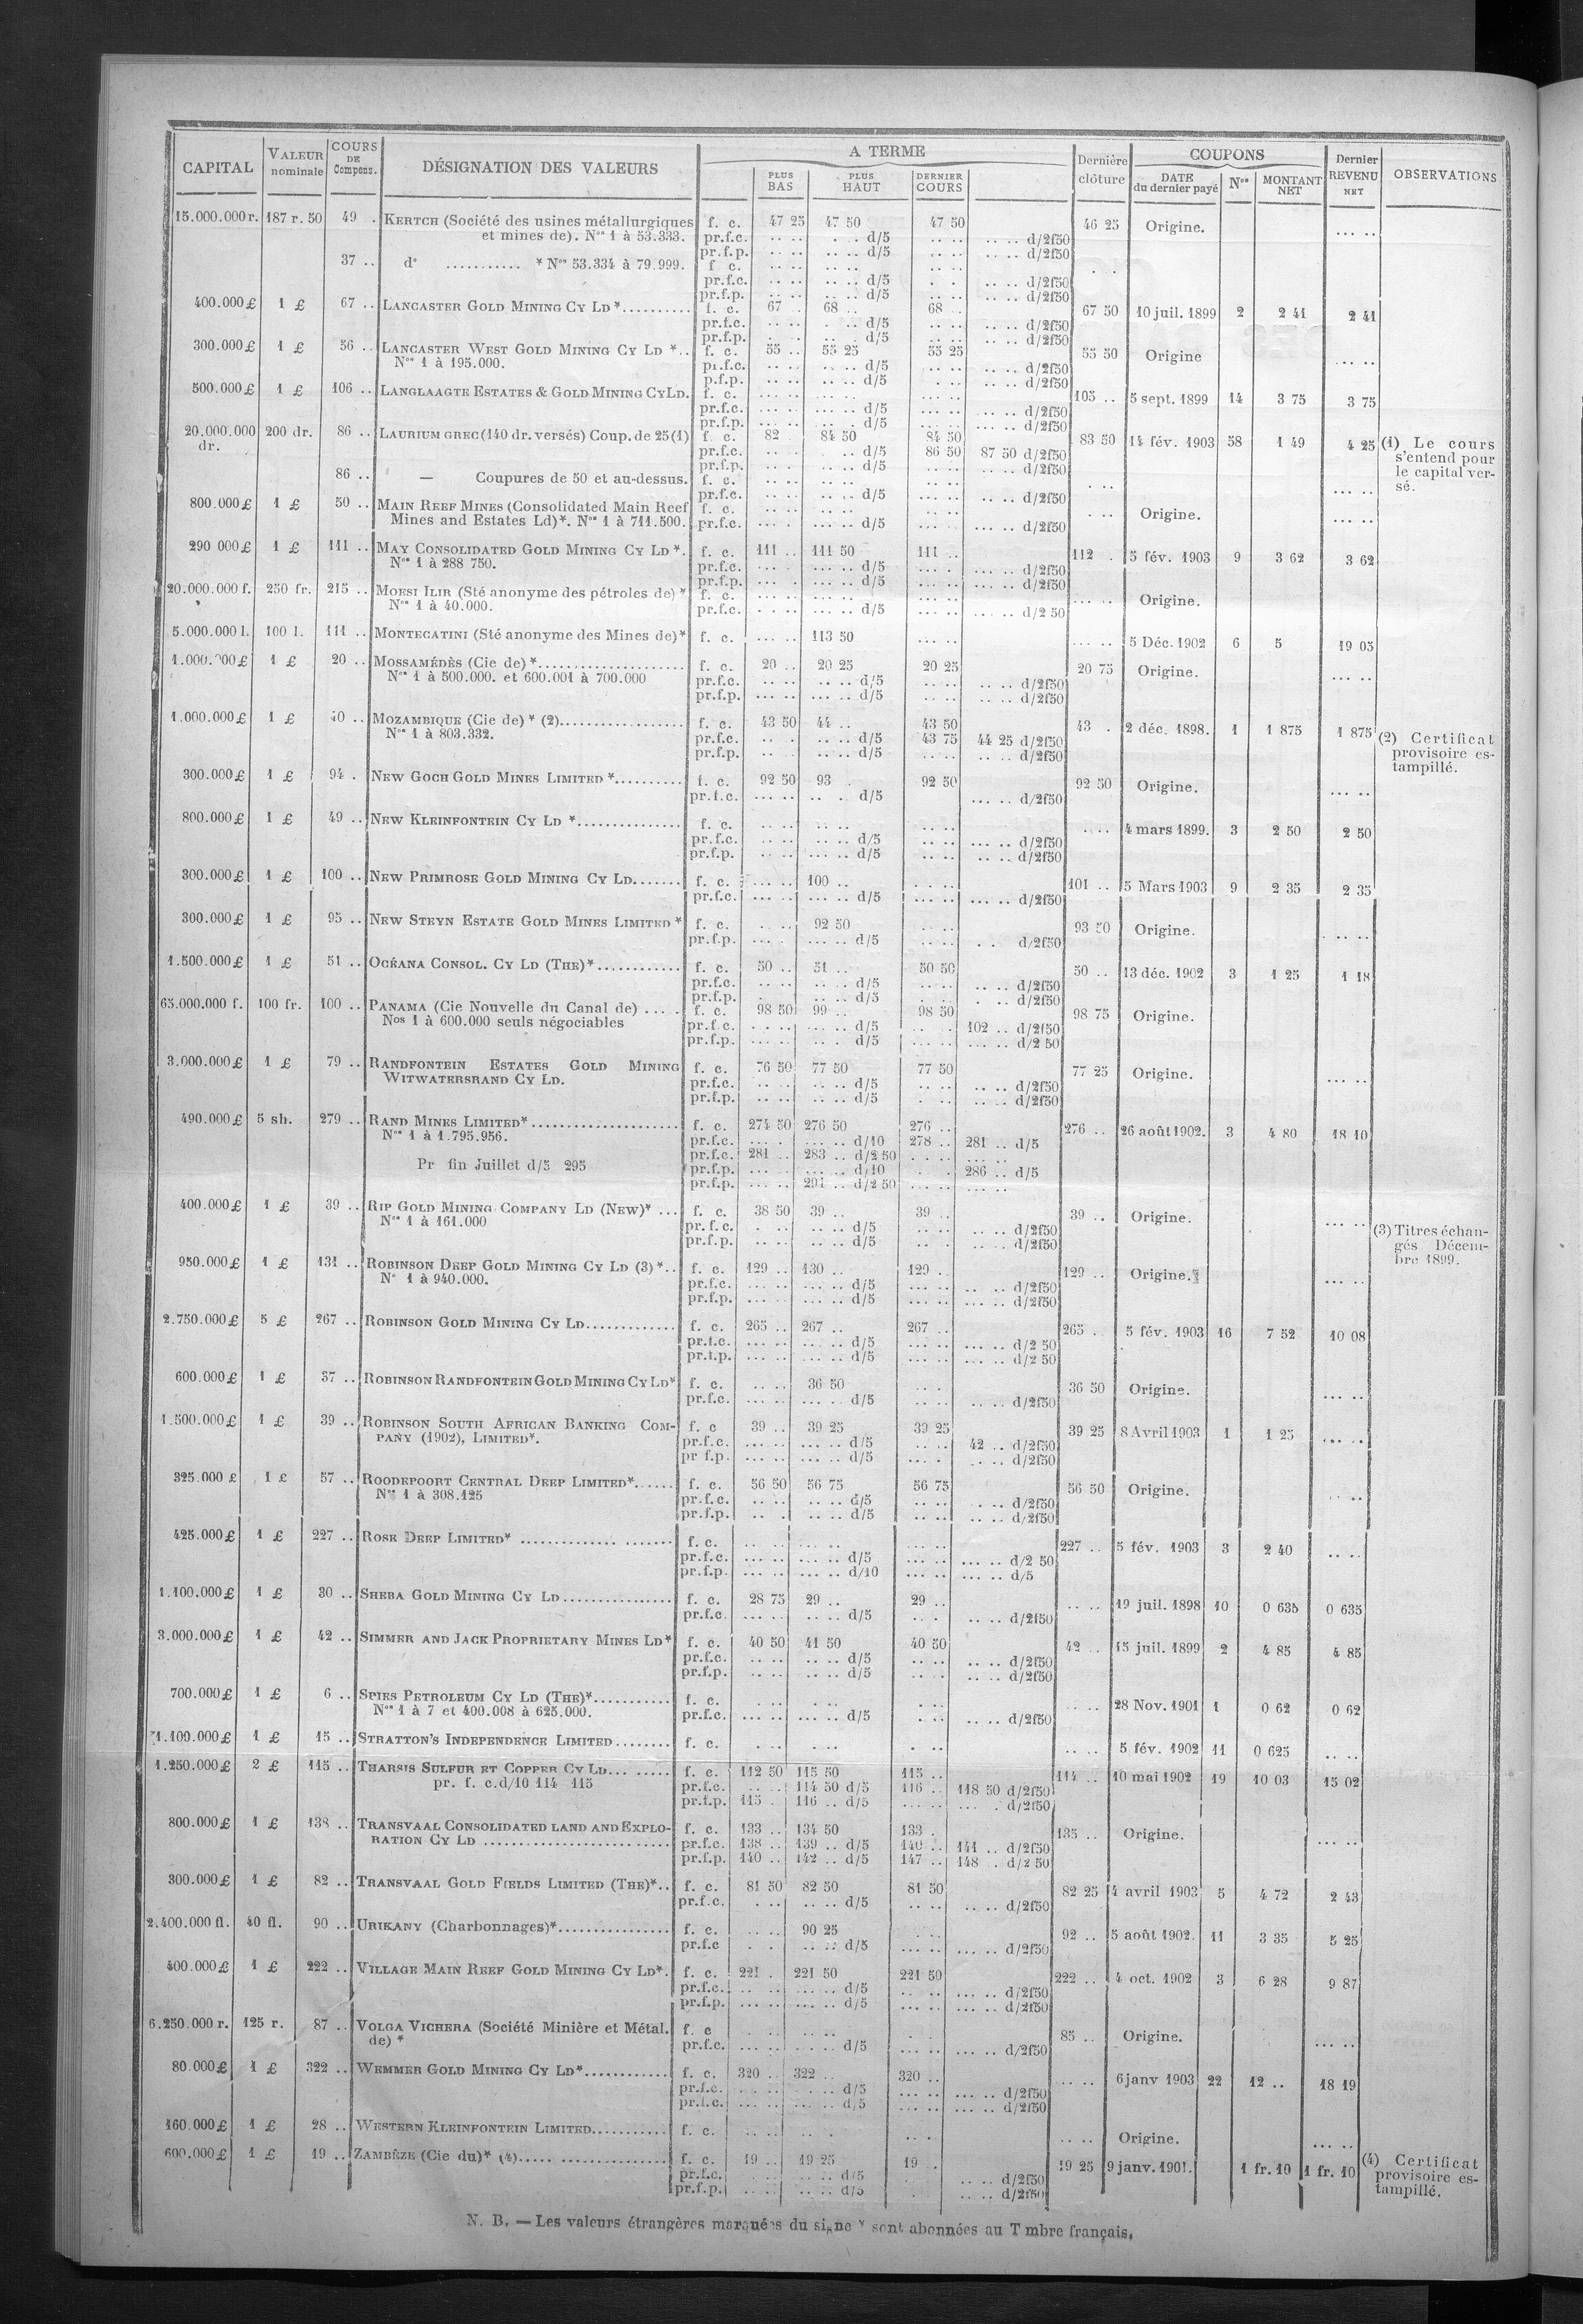 CAPITAL | VALEUR nominale | COURS DE Compens. | DÉSIGNATION DES VALEURS | A TERME | PLUS BAS | PLUS HAUT | DERNIER COURS | Dernière clôture | COUPONS | DATE du dernier payé | Nos | MONTANT NET | Dernier REVENU NET | OBSERVATIONS
15.000.000 r. 187 r. 50 49 . KERTCH (Société des usines métallurgiques f. c. 47 25 47 50 47 50 46 25 Origine. ... ..
et mines de). Nos 1 à 53.333. pr.f.c. .. .. . . d/5 .. .. .. .. d/2f50
pr.f.p. .. .. .. .. d/5 .. .. .. .. d/2f50
37 .. do ........... * Nos 53.334 à 79.999. f c. .. .. .. .. .. ..
pr.f.c. .. .. .. .. d/5 . . .. .. d/2f50
pr.f.p. .. .. .. .. d/5 .. .. .. .. d/2f50
400.000 £ 1 £ 67 .. LANCASTER GOLD MINING CY LD *.......... f. c. 67 . 68 .. 68 .. 67 50 10 juil. 1899 2 2 41 2 41
pr.f.c. .. .. . .. d/5 .. .. .. .. d/2f50
pr.f.p. . . . .. d/5 .. .. .. .. d/2f50
300.000 £ 1 £ 56 .. LANCASTER WEST GOLD MINING CY LD *.. f. c. 55 .. 55 25 55 25 55 50 Origine ... ..
Nos 1 à 195.000. pr.f.c. .. .. .. .. d/5 .. .. .. .. d/2f50
p.f.p. .. .. .. .. d/5 .. .. .. .. d/2f50
500.000 £ 1 £ 106 .. LANGLAAGTE ESTATES & GOLD MINING CY LD. f. c. ... .. ... .. ... .. 105 .. 5 sept. 1899 14 3 75 3 75
pr.f.c. ... .. ... .. d/5 ... .. ... .. d/2f50
pr.f.p. ... .. ... .. d/5 ... .. ... .. d/2f50
20.000.000 dr. 200 dr. 86 .. LAURIUM GREC (140 dr. versés) Coup. de 25 (1) f. c. 82 . 84 50 84 50 83 50 14 fév. 1903 58 1 49 4 25 (1) Le cours
pr.f.c. .. . . .. d/5 86 50 87 50 d/2f50 s'entend pour
pr.f.p. .. .. .. .. d/5 .. .. .. .. d/2f50 le capital ver-
86 .. — Coupures de 50 et au-dessus. f. c. .. .. .. .. .. .. . .. ... .. sé.
pr.f.c. .. .. .. .. d/5 .. .. .. .. d/2f50
800.000 £ 1 £ 50 .. MAIN REEF MINES (Consolidated Main Reef f. c. .. .. .. .. .. .. . .. Origine. ... ..
Mines and Estates Ld)*. Nos 1 à 711.500. pr.f.c. ... . ... .. d/5 ... .. ... .. d/2f50
290 000 £ 1 £ 111 .. MAY CONSOLIDATED GOLD MINING CY LD *. f. c. 111 .. 111 50 111 .. 112 . 5 fév. 1903 9 3 62 3 62
Nos 1 à 288 750. pr.f.c. ... . ... .. d/5 ... . ... .. d/2f50
pr.f.p. ... . ... .. d/5 ... .. ... .. d/2f50
20.000.000 f. 250 fr. 215 .. MOESI ILIR (Sté anonyme des pétroles de) * f. c. ... .. ... .. ... .. ... .. Origine.
Nos 1 à 40.000. pr.f.c. . . .. ... .. d/5 ... .. ... .. d/2 50
5.000.000 l. 100 l. 111 .. MONTECATINI (Sté anonyme des Mines de)* f. c. ... .. 113 50 ... .. ... .. 5 Déc. 1902 6 5 19 05
1 £ 20 .. MOSSAMÉDÈS (Cie de) *.................... f. c. 20 .. 20 25 20 25 20 75 Origine. ... ..
Nos 1 à 500.000. et 600.001 à 700.000 pr.f.c. .. .. .. .. d/5 .. .. .. .. d/2f50
pr.f.p. ... .. ... .. d/5 .. .. .. .. d/2f50
1.000.000 £ 1 £ 40 .. MOZAMBIQUE (Cie de) * (2)................. f. c. 43 50 44 .. 43 50 43 . 2 déc. 1898. 1 1 875 1 875 (2) Certificat
Nos 1 à 803.332. pr.f.c. .. . .. .. d/5 43 75 44 25 d/2f50 provisoire es-
pr.f.p. .. .. .. .. d/5 .. .. .. .. d/2f50 tampillé.
300.000 £ 1 £ 94 . NEW GOCH GOLD MINES LIMITED *.......... f. c. 92 50 93 . 92 50 92 50 Origine. ... ..
pr.f.c. ... .. .. . d/5 ... .. d/2f50
800.000 £ 1 £ 49 .. NEW KLEINFONTEIN CY LD *............... f. c. .. .. .. .. .. .. . .. 4 mars 1899. 3 2 50 2 50
pr.f.c. .. .. .. .. d/5 .. .. ... .. d/2f50
pr.f.p. .. .. ... .. d/5 .. .. .. .. d/2f50
300.000 £ 1 £ 100 .. NEW PRIMROSE GOLD MINING CY LD....... f. c. ... .. 100 .. . . .. 101 .. 5 Mars 1903 9 2 35 2 35
pr.f.c. ... .. ... .. d/5 ... .. ... .. d/2f50
300.000 £ 1 £ 95 .. NEW STEYN ESTATE GOLD MINES LIMITED * f. c. .. .. 92 50 .. .. 93 50 Origine. . .. ..
pr.f.p. ... . ... .. d/5 .. .. . . d/2f50
1.500.000 £ 1 £ 51 .. OCÉANA CONSOL. CY LD (THE)*............ f. c. 50 .. 51 .. 50 50 50 .. 13 déc. 1902 3 1 25 1 18
pr.f.c. .. .. .. .. d/5 .. .. .. .. d/2f50
pr.f.p. . .. .. d/5 . . . .. d/2f50
65.000.000 f. 100 fr. 100 .. PANAMA (Cie Nouvelle du Canal de) ..... f. c. 98 50 99 .. 98 50 98 75 Origine.
Nos 1 à 600.000 seuls négociables pr.f.c. . . .. ... .. d/5 .. . 102 .. d/2f50
pr.f.p. ... .. .. . d/5 ... .. ... .. d/2 50
3.000.000 £ 1 £ 79 .. RANDFONTEIN ESTATES GOLD MINING f. c. 76 50 77 50 77 50 77 25 Origine. ... ..
WITWATERSRAND CY LD. pr.f.c. .. .. .. .. d/5 .. .. .. .. d/2f50
pr.f.p. .. .. .. .. d/5 . .. .. .. d/2f50
490.000 £ 5 sh. 279 .. RAND MINES LIMITED*...................... f. c. 274 50 276 50 276 .. 276 .. 26 août 1902. 3 4 80 18 10
Nos 1 à 1.795.956. pr.f.c. ... . ... .. d/10 278 .. 281 .. d/5
pr.f.c. 281 .. 283 .. d/2 50 . . .. ... ..
Pr fin Juillet d/5 295 pr.f.p. ... .. ... .. d/10 . . 286 .. d/5
pr.f.p. ... .. .. d/2 50 ... .. ... ..
400.000 £ 1 £ 39 .. RIP GOLD MINING COMPANY LD (NEW)* ... f. c. 38 50 39 .. 39 .. 39 .. Origine. ... .. (3) Titres échan-
Nos 1 à 161.000 pr.f.c. . .. .. .. d/5 .. .. .. .. d/2f50 gés Décem-
pr.f.p. .. .. .. .. d/5 .. .. .. .. d/2f50 bre 1899.
950.000 £ 1 £ 131 .. ROBINSON DEEP GOLD MINING CY LD (3) *.. f. c. 129 .. 130 .. 129 .. 129 .. Origine. ... ..
No 1 à 940.000. pr.f.c. ... .. ... .. d/5 ... .. .. .. d/2f50
pr.f.p. ... .. ... .. d/5 ... .. ... .. d/2f50
2.750.000 £ 5 £ 267 .. ROBINSON GOLD MINING CY LD............. f. c. 265 .. 267 .. 267 .. 265 . 5 fév. 1903 16 7 52 10 08
pr.f.c. ... .. ... .. d/5 ... .. ... .. d/2 50
pr.f.p. ... .. ... .. d/5 ... .. ... .. d/2 50
600.000 £ 1 £ 37 .. ROBINSON RANDFONTEIN GOLD MINING CY LD* f. c. .. .. 36 50 . .. 36 50 Origine. ... ..
pr.f.c. ... .. ... .. d/5 ... .. ... .. d/2f50
1.500.000 £ 1 £ 39 .. ROBINSON SOUTH AFRICAN BANKING COM- f. c 39 .. 39 25 39 25 39 25 8 Avril 1903 1 1 25 ... ..
PANY (1902), LIMITED*. pr.f.c. ... .. ... .. d/5 .. .. 42 .. d/2f50
pr f.p. ... .. ... .. d/5 ... . .. .. d/2f50
325.000 £ 1 £ 57 .. ROODEPOORT CENTRAL DEEP LIMITED*...... f. c. 56 50 56 75 56 75 56 50 Origine. . ..
Nos 1 à 308.125 pr.f.c. .. .. .. .. d/5 .. .. . .. d/2f50
pr.f.p. .. . .. .. d/5 .. .. .. .. d/2f50
425.000 £ 1 £ 227 .. ROSE DEEP LIMITED* .............. ....... f. c. .. .. .. .. ... .. 227 .. 5 fév. 1903 3 2 40 .. ..
pr.f.c. ... .. ... .. d/5 ... .. ... .. d/2 50
pr.f.p. ... .. ... .. d/10 ... .. ... .. d/5
1.100.000 £ 1 £ 30 .. SHEBA GOLD MINING CY LD................ f. c. 28 75 29 .. 29 .. .. .. 19 juil. 1898 10 0 635 0 635
pr.f.c. ... .. .. .. d/5 .. . .. .. d/2f50
3.000.000 £ 1 £ 42 .. SIMMER AND JACK PROPRIETARY MINES LD* f. c. 40 50 41 50 40 50 42 .. 15 juil. 1899 2 4 85 4 85
pr.f.c. .. .. .. .. d/5 .. .. .. .. d/2f50
pr.f.p. .. .. .. .. d/5 .. .. .. .. d/2f50
700.000 £ 1 £ 6 .. SPIES PETROLEUM CY LD (THE)*........... f. c. . .. . .. . .. .. .. 28 Nov. 1901 1 0 62 0 62
Nos 1 à 7 et 400.008 à 625.000. pr.f.c. ... .. ... .. d/5 . .. .. .. d/2f50
1.100.000 £ 1 £ 15 .. STRATTON'S INDEPENDENCE LIMITED........ f. c. . .. . .. . .. .. .. 5 fév. 1902 11 0 625 .. ..
1.250.000 £ 2 £ 115 .. THARSIS SULFUR ET COPPER CY LD... ..... f. c. 112 50 115 50 115 .. 114 .. 10 mai 1902 19 10 03 15 02
pr. f. c. d/10 114 115 pr.f.c. .. .. 114 50 d/5 116 .. 118 50 d/2f50
pr.f.p. 115 .. 116 .. d/5 ... .. ... . d/2f50
800.000 £ 1 £ 138 .. TRANSVAAL CONSOLIDATED LAND AND EXPLO- f. c. 133 .. 134 50 133 . 135 .. Origine. ... ..
RATION CY LD .......................... pr.f.c. 138 .. 139 .. d/5 140 .. 141 .. d/2f50
pr.f.p. 140 .. 142 .. d/5 147 .. 148 .. d/2 50
300.000 £ 1 £ 82 .. TRANSVAAL GOLD FIELDS LIMITED (THE)*.. f. c. 81 50 82 50 81 50 82 25 4 avril 1903 5 4 72 2 43
pr.f.c. . .. .. .. d/5 .. .. .. .. d/2f50
2.400.000 fl. 40 fl. 90 .. URIKANY (Charbonnages)*................ f. c. .. .. 90 25 . .. 92 .. 5 août 1902. 11 3 35 5 25
pr.f.c . . .. .. d/5 ... .. ... .. d/2f50
400.000 £ 1 £ 222 .. VILLAGE MAIN REEF GOLD MINING CY LD*. f. c. 221 . 221 50 221 50 222 .. 4 oct. 1902 3 6 28 9 87
pr.f.c. .. .. ... .. d/5 .. .. ... .. d/2f50
pr.f.p. ... .. ... .. d/5 ... .. ... .. d/2f50
6.250.000 r. 125 r. 87 .. VOLGA VICHERA (Société Minière et Métal. f. c . .. .. .. . . 85 .. Origine. ... ..
de) * pr.f.c. ... .. .. d/5 ... .. ... .. d/2f50
80.000 £ 1 £ 322 .. WEMMER GOLD MINING CY LD*............ f. c. 320 .. 322 .. 320 .. .. .. 6 janv 1903 22 12 .. 18 19
pr.f.c. .. .. . .. d/5 ... .. ... .. d/2f50
pr.f.c. ... .. ... .. d/5 ... .. ... .. d/2f50
160.000 £ 1 £ 28 .. WESTERN KLEINFONTEIN LIMITED........... f. c. .. . .. . . .. .. .. Origine. ... ..
600.000 £ 1 £ 19 .. ZAMBÈZE (Cie du)* (4)..... ............... f. c. 19 .. 19 25 19 . 19 25 9 janv. 1901. 1 fr. 10 1 fr. 10 (4) Certificat
pr.f.c. .. .. .. d/5 . .. .. d/2f50 provisoire es-
pr.f.p. .. .. .. .. d/5 . .. .. d/2f50 tampillé.
N. B. — Les valeurs étrangères marquées du signe * sont abonnées au T mbre français.